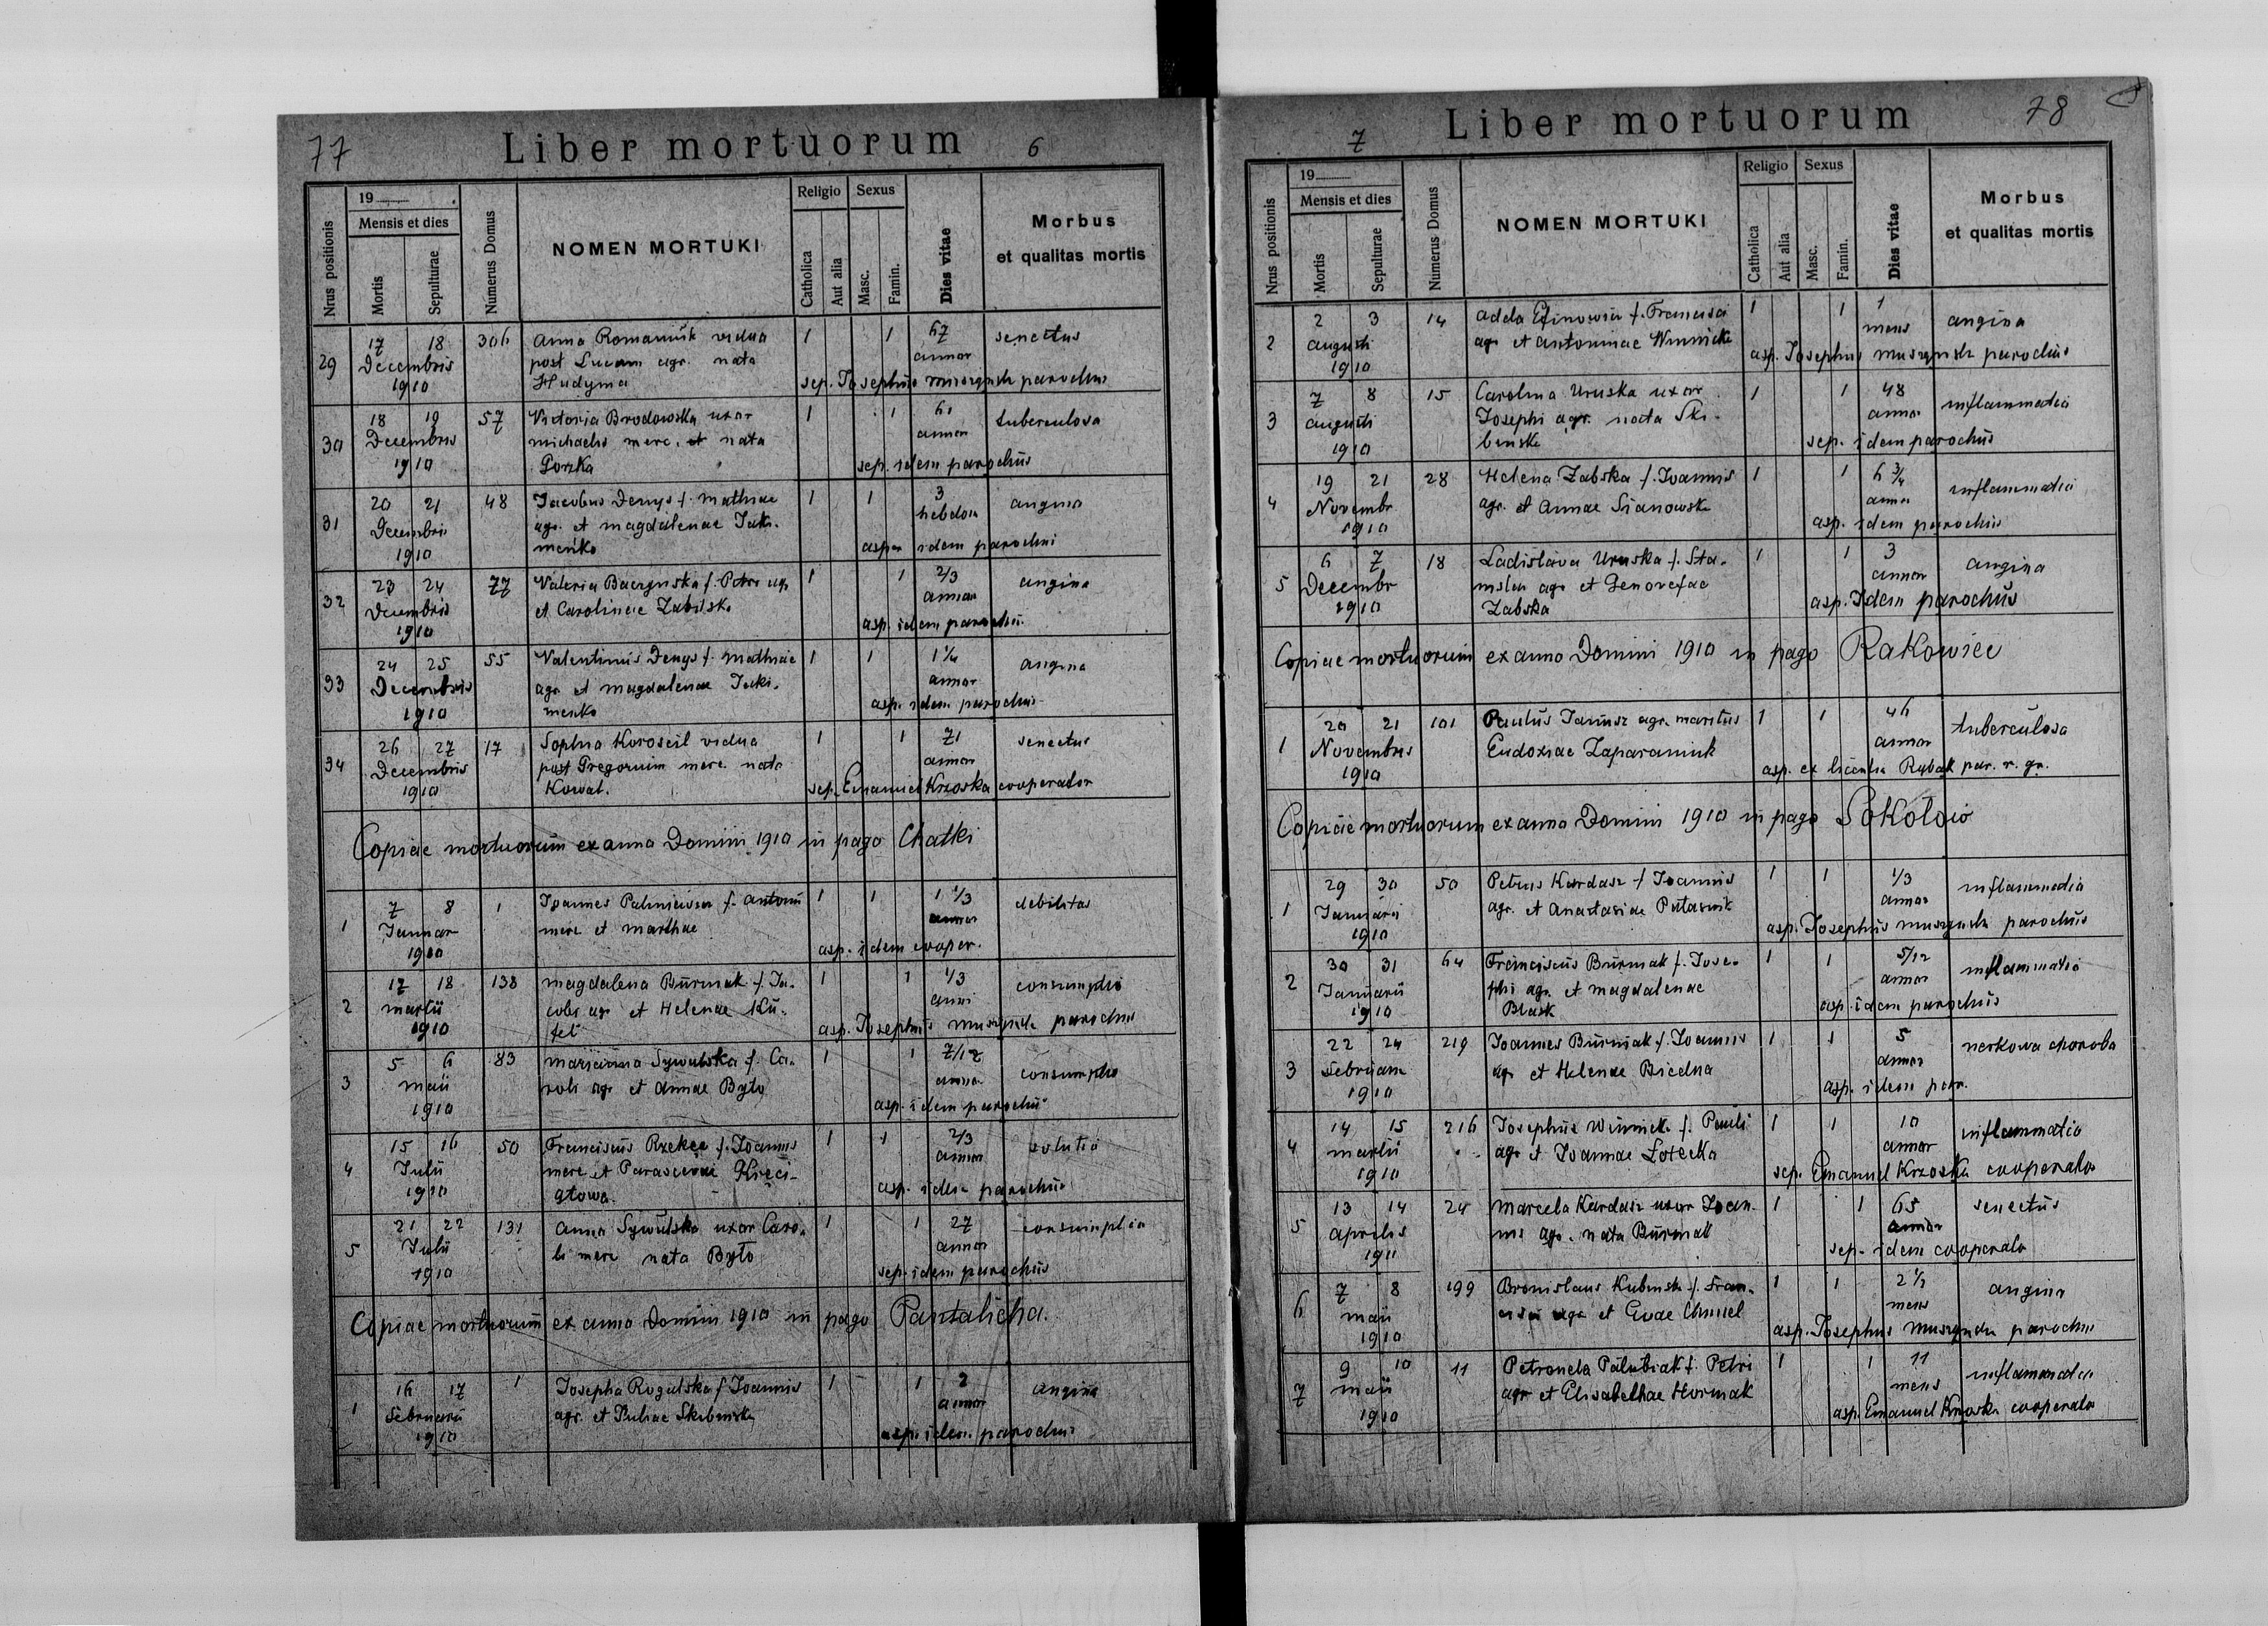 77
Liber mortuorum 6
Nrus positionis
19
Mensis et dies
Mortis
Sepulturae
Numerus Domus
NOMEN MORTUKI
Religio
Catholica
Aut alia
Sexus
Masc.
Famin.
Dies vitae
Morbus
et qualitas mortis
29 17 18 306 Anna Romaniuk vidua 1 1 67 senectus
Decembris post Lucam agr. nata annor
1910 Hudyma sep. Josephus muszynski parochus
30 18 19 57 Victoria Brodowska uxor 1 1 61 tuberculosa
Decembris michaelis merc. et nata annor
1910 Porzka sep. idem parochus
31 20 21 48 Jacobus Denys f. mathiae 1 1 3 angina
Decembris agr. et magdalenae Jaki- hebdom
1910 menko asper idem parochus
32 23 24 77 Valeria Baczynska f. Petri agr 1 1 2/3 angina
Decembris et Carolinae Zabilska annor
1910 asp. idem parochus
33 24 25 55 Valentinus Denys f. mathiae 1 1 1 1/4 angina
Decembris agr. et magdalenae Jaki- annor
1910 menko asp. idem parochus
34 26 27 17 Sophia Koroscil vidua 1 1 71 senectus
Decembris post Gregorium merc. nata annor
1910 Kowal. sep. Emanuel Krzoska cooperator
Copiae mortuorum ex anno Domini 1910 in pago Chatki
1 7 8 1 Joannes f. antonii 1 1 1 1/3 debilitas
Januar merc et marthae annor
1910 asp. idem cooper.
2 17 18 138 magdalena Burmak f. Ja- 1 1 1/3 consumptio
martii cobi agr et Helenae Ku- anni
1910 fel asp. Josephus muszynski parochus
3 5 6 83 marianna Sywulska f. Ca- 1 1 7/12 consumptio
maii roli agr et annae Było annor
1910 asp. idem parochus
4 15 16 50 Franciscus Rzekec f. Joannis 1 1 2/3 solutio
Julii merc et Parascevae Kręci- annor
1910 głowa. asp. idem parochus
5 21 22 131 anna Sywulska uxor Caro- 1 1 27 consumptio
Julii li merc nata Było annor
1910 sep. idem parochus
Copiae mortuorum ex anno Domini 1910 in pago Pantalicha.
1 16 17 1 Josepha Rogulska f Joannis 1 1 2 angina
Februarii agr. et Juliae Skibinska annor
1910 asp. idem parochus
7 Liber mortuorum 78
Nrus positionis
19
Mensis et dies
Mortis
Sepulturae
Numerus Domus
NOMEN MORTUKI
Religio
Catholica
Aut alia
Sexus
Masc.
Famin.
Dies vitae
Morbus
et qualitas mortis
2 2 3 14 adela f. Francisci 1 1 1 angina
augusti agr et antoninae Winnicki mens
1910 asp. Josephus muszynski parochus
3 7 8 15 Carolina Uruska uxor 1 1 48 inflammatio
augusti Josephi agr. nata Ski- annor
1910 binska sep. idem parochus
4 19 21 28 Helena Zabska f. Joannis 1 1 6 3/4 inflammatio
Novembr agr. et annae Sianowska annor
1910 asp. idem parochus
5 6 7 18 Ladislava Uruska f. Sta- 1 1 3 angina
Decembr nislai agr et Genovefae annor
1910 Zabska asp. Idem parochus
Copiae mortuorum ex anno Domini 1910 in pago Rakowiec
1 20 21 101 Paulus Janusz agr. maritus 1 1 46 tuberculosa
Novembris Eudoxiae Zaparaniuk annor
1910 asp. ex licentia Rybak par. r. gr.
Copiae mortuorum ex anno Domini 1910 in pago Sokolow
1 29 30 50 Petrus Kardasz f Joannis 1 1 1/3 inflammatio
Januarii agr. et Anastasiae Putasnik annor
1910 asp. Josephus muszynski parochus
2 30 31 64 Franciscus Burmak f. Jose- 1 1 5/12 inflammatio
Januarii phi agr. et magdalenae annor
1910 Blask asp. idem parochus
3 22 24 219 Joannes Burniak f. Joannis 1 1 5 nerkowa choroba
Februarii agr et Helenae Biedna annor
1910 asp. idem par.
4 14 15 216 Josephus Winnicki f. Pauli 1 1 10 inflammatio
martii agr et Joannae Łotecka annor
1910 sep. Emanuel Krzoska cooperator
5 13 14 24 marcela Kardasz uxor Joan- 1 1 65 senectus
aprilis nis agr. nata Burmak annor
1911 sep. idem cooperator
6 7 8 199 Bronislaus Kubinski f. Fran- 1 1 2 1/2 angina
maii cisci agr et Evae Chmiel mens
1910 asp. Josephus muszynski parochus
7 9 10 11 Petronela Palubiak f. Petri 1 1 11 inflammatio
maii agr et Elisabethae Hormak mens
1910 asp. Emanuel Krzoska cooperator